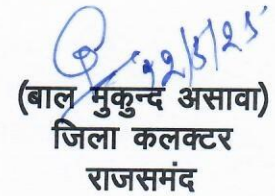 12/5/25
(बाल मुकुन्द असावा)
जिला कलक्टर
राजसमंद